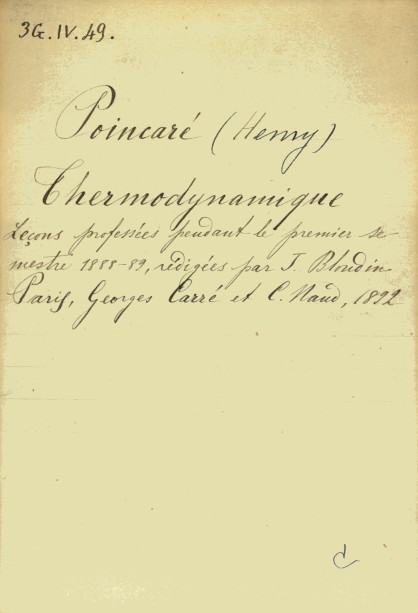 3G.IV.49.
Poincaré (Henry)
Thermodynamique
Leçons professées pendant le premier se-
mestre 1888-89, rédigées par J. Blondin
Paris, Georges Carré et C. Naud, 1892